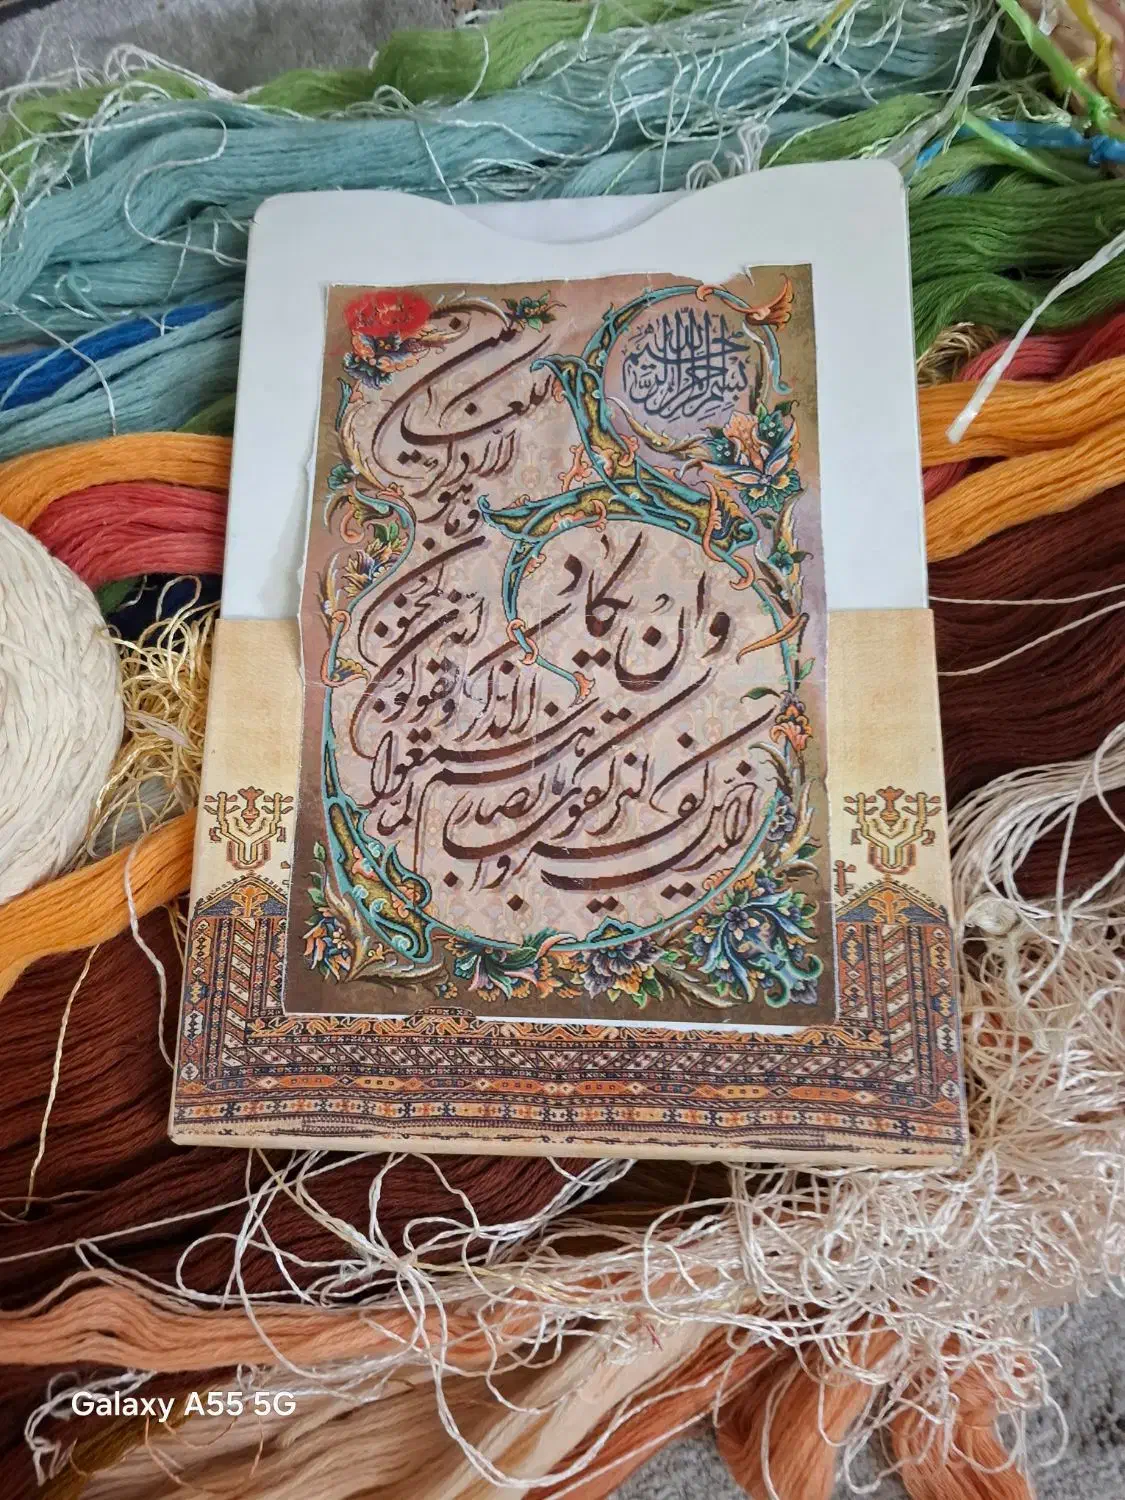 بسم الله الرحمن الرحیم
وان یکاد
الذین کفروا لیزلقونک بابصارهم لما سمعوا
الذکر ویقولون انه لمجنون
وما هو الا ذکر للعالمین
Galaxy A55 5G